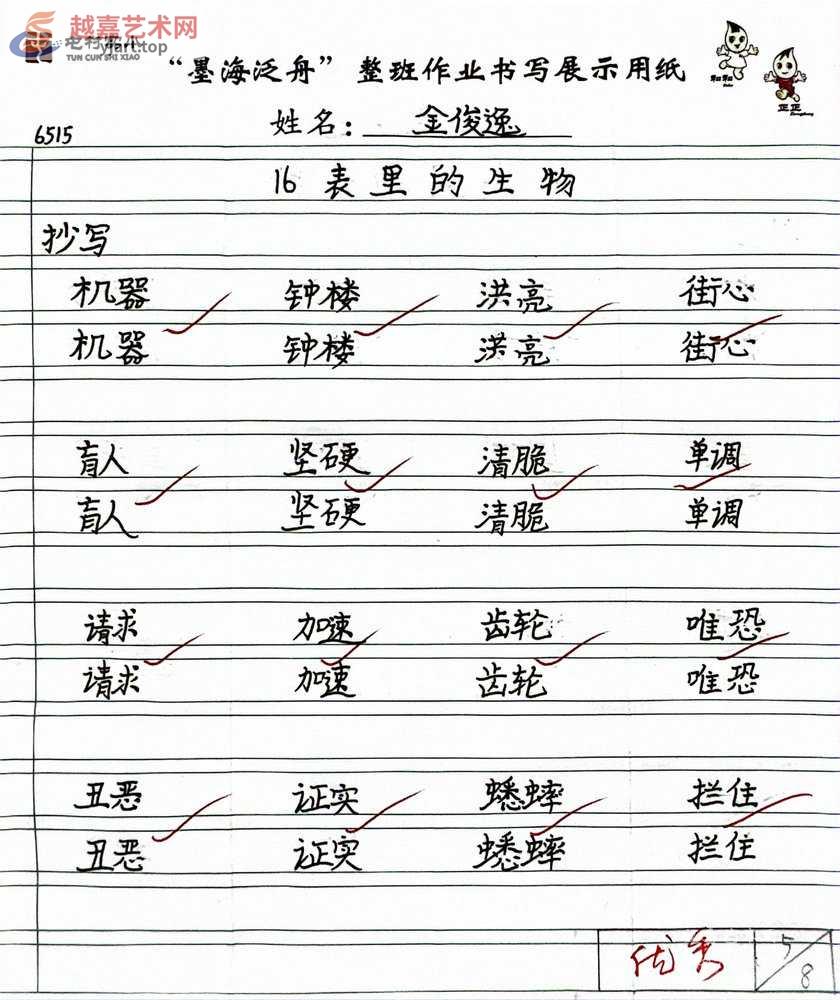 越嘉艺术网
yjart.top
TUN CUN SHI XIAO
“墨海泛舟”整班作业书写展示用纸
正正
6515
姓名：金俊逸
16 表里的生物
抄写
机器 钟楼 洪亮 街心
机器 钟楼 洪亮 街心
盲人 坚硬 清脆 单调
盲人 坚硬 清脆 单调
请求 加速 齿轮 唯恐
请求 加速 齿轮 唯恐
丑恶 证实 蟋蟀 拦住
丑恶 证实 蟋蟀 拦住
优秀 5/8